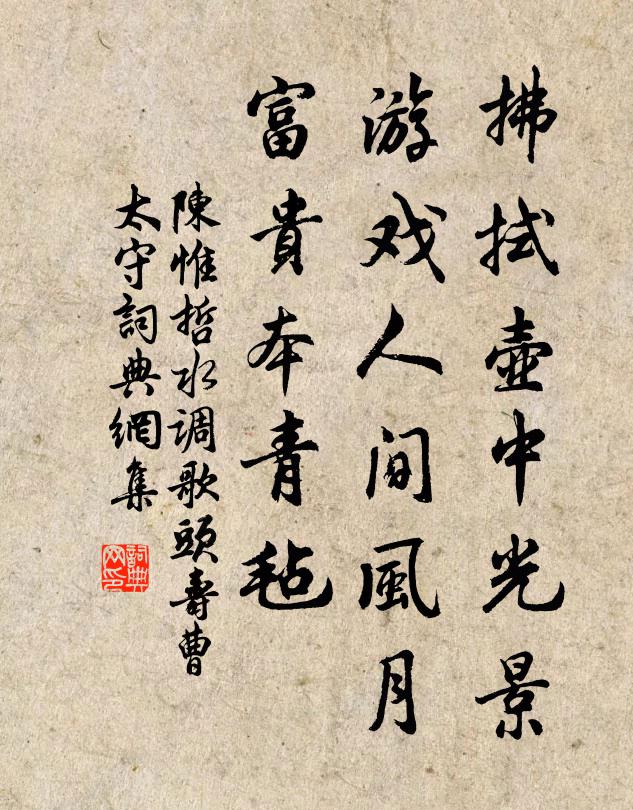 拂拭壺中光景
游戏人间風月
富貴本青毡
陳惟哲水调歌頭壽曹
太守詞典網集
詞典网印